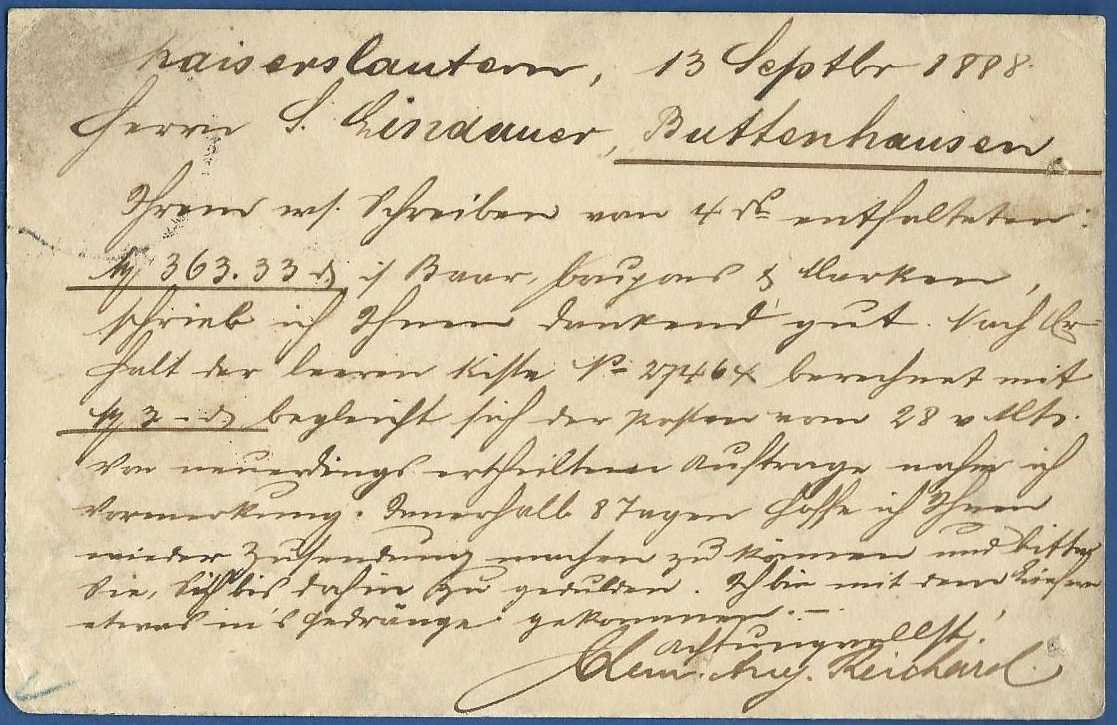 Kaiserslautern, 13 Septbr 1888.
Herrn S. Lindauer, Buttenhausen.
Ihrem w. Schreiben vom 4 ds enthalteten:
M 363.33 d i/ Baar, Coupons & Marken,
schrieb ich Ihnen dankend gut. Nach Er-
halt der leeren Kiste No 27464 berechnet mit
M 3 - d begleicht sich der Posten vom 28 v Mts.
Von neuerdings ertheiltem Auftrage nahm ich
Vormerkung. Innerhalb 8 Tagen hoffe ich Ihnen
wieder Zusendung machen zu können und bitte
Sie, sich bis dahin zu gedulden. Ich bin mit dem Liefern
etwas in's Gedränge gekommen. -
Achtungsvollst!
Clem. Aug. Reichard.